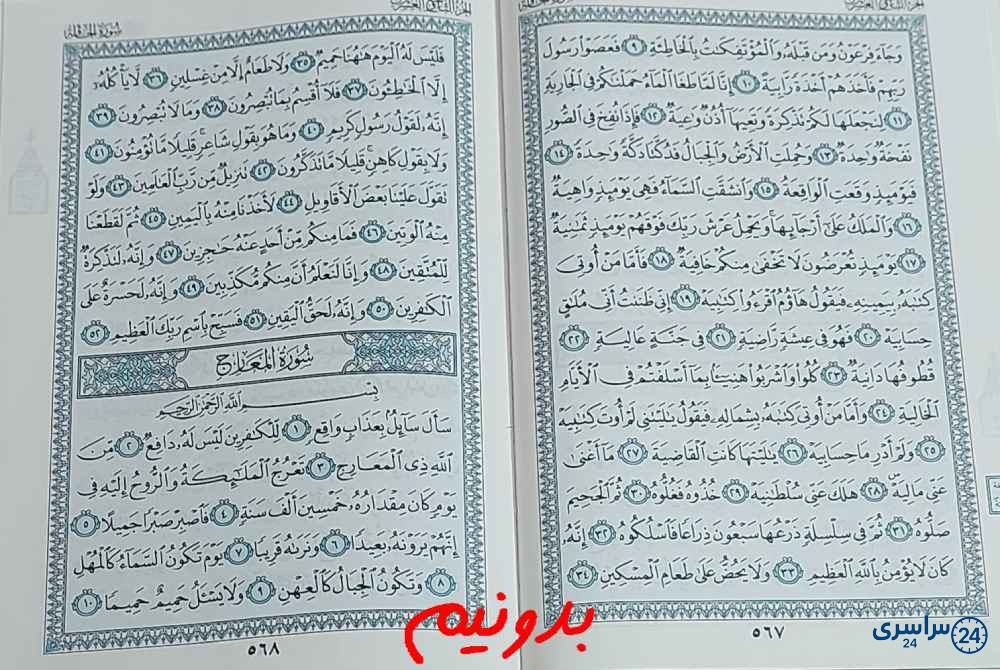 الجزء التاسع والعشرون
سورة الحاقة
وَجَآءَ فِرْعَوْنُ وَمَن قَبْلَهُۥ وَٱلْمُؤْتَفِكَٰتُ بِٱلْخَاطِئَةِ ٩ فَعَصَوْا۟ رَسُولَ
رَبِّهِمْ فَأَخَذَهُمْ أَخْذَةً رَّابِيَةً ١٠ إِنَّا لَمَّا طَغَا ٱلْمَآءُ حَمَلْنَٰكُمْ فِى ٱلْجَارِيَةِ
١١ لِنَجْعَلَهَا لَكُمْ تَذْكِرَةً وَتَعِيَهَآ أُذُنٌ وَٰعِيَةٌ ١٢ فَإِذَا نُفِخَ فِى ٱلصُّورِ
نَفْخَةٌ وَٰحِدَةٌ ١٣ وَحُمِلَتِ ٱلْأَرْضُ وَٱلْجِبَالُ فَدُكَّتَا دَكَّةً وَٰحِدَةً ١٤
فَيَوْمَئِذٍ وَقَعَتِ ٱلْوَاقِعَةُ ١٥ وَٱنشَقَّتِ ٱلسَّمَآءُ فَهِىَ يَوْمَئِذٍ وَاهِيَةٌ
١٦ وَٱلْمَلَكُ عَلَىٰٓ أَرْجَآئِهَا وَيَحْمِلُ عَرْشَ رَبِّكَ فَوْقَهُمْ يَوْمَئِذٍ ثَمَٰنِيَةٌ
١٧ يَوْمَئِذٍ تُعْرَضُونَ لَا تَخْفَىٰ مِنكُمْ خَافِيَةٌ ١٨ فَأَمَّا مَنْ أُوتِىَ
كِتَٰبَهُۥ بِيَمِينِهِۦ فَيَقُولُ هَآؤُمُ ٱقْرَءُوا۟ كِتَٰبِيَهْ ١٩ إِنِّى ظَنَنتُ أَنِّى مُلَٰقٍ
حِسَابِيَهْ ٢٠ فَهُوَ فِى عِيشَةٍ رَّاضِيَةٍ ٢١ فِى جَنَّةٍ عَالِيَةٍ ٢٢
قُطُوفُهَا دَانِيَةٌ ٢٣ كُلُوا۟ وَٱشْرَبُوا۟ هَنِيٓـًٔۢا بِمَآ أَسْلَفْتُمْ فِى ٱلْأَيَّامِ
ٱلْخَالِيَةِ ٢٤ وَأَمَّا مَنْ أُوتِىَ كِتَٰبَهُۥ بِشِمَالِهِۦ فَيَقُولُ يَٰلَيْتَنِى لَمْ أُوتَ كِتَٰبِيَهْ
٢٥ وَلَمْ أَدْرِ مَا حِسَابِيَهْ ٢٦ يَٰلَيْتَهَا كَانَتِ ٱلْقَاضِيَةَ ٢٧ مَآ أَغْنَىٰ
عَنِّى مَالِيَهْ ٢٨ هَلَكَ عَنِّى سُلْطَٰنِيَهْ ٢٩ خُذُوهُ فَغُلُّوهُ ٣٠ ثُمَّ ٱلْجَحِيمَ
صَلُّوهُ ٣١ ثُمَّ فِى سِلْسِلَةٍ ذَرْعُهَا سَبْعُونَ ذِرَاعًا فَٱسْلُكُوهُ ٣٢ إِنَّهُۥ
كَانَ لَا يُؤْمِنُ بِٱللَّهِ ٱلْعَظِيمِ ٣٣ وَلَا يَحُضُّ عَلَىٰ طَعَامِ ٱلْمِسْكِينِ ٣٤
٥٦٧
الجزء التاسع والعشرون
سورة الحاقة
فَلَيْسَ لَهُ ٱلْيَوْمَ هَٰهُنَا حَمِيمٌ ٣٥ وَلَا طَعَامٌ إِلَّا مِنْ غِسْلِينٍ ٣٦ لَّا يَأْكُلُهُۥٓ
إِلَّا ٱلْخَٰطِـُٔونَ ٣٧ فَلَآ أُقْسِمُ بِمَا تُبْصِرُونَ ٣٨ وَمَا لَا تُبْصِرُونَ ٣٩
إِنَّهُۥ لَقَوْلُ رَسُولٍ كَرِيمٍ ٤٠ وَمَا هُوَ بِقَوْلِ شَاعِرٍ قَلِيلًا مَّا تُؤْمِنُونَ ٤١
وَلَا بِقَوْلِ كَاهِنٍ قَلِيلًا مَّا تَذَكَّرُونَ ٤٢ تَنزِيلٌ مِّن رَّبِّ ٱلْعَٰلَمِينَ ٤٣ وَلَوْ
تَقَوَّلَ عَلَيْنَا بَعْضَ ٱلْأَقَاوِيلِ ٤٤ لَأَخَذْنَا مِنْهُ بِٱلْيَمِينِ ٤٥ ثُمَّ لَقَطَعْنَا
مِنْهُ ٱلْوَتِينَ ٤٦ فَمَا مِنكُم مِّنْ أَحَدٍ عَنْهُ حَٰجِزِينَ ٤٧ وَإِنَّهُۥ لَتَذْكِرَةٌ
لِّلْمُتَّقِينَ ٤٨ وَإِنَّا لَنَعْلَمُ أَنَّ مِنكُم مُّكَذِّبِينَ ٤٩ وَإِنَّهُۥ لَحَسْرَةٌ عَلَى
ٱلْكَٰفِرِينَ ٥٠ وَإِنَّهُۥ لَحَقُّ ٱلْيَقِينِ ٥١ فَسَبِّحْ بِٱسْمِ رَبِّكَ ٱلْعَظِيمِ ٥٢
سُورَةُ المَعَارِجِ
بِسْمِ ٱللَّهِ ٱلرَّحْمَٰنِ ٱلرَّحِيمِ
سَأَلَ سَآئِلٌۢ بِعَذَابٍ وَاقِعٍ ١ لِّلْكَٰفِرِينَ لَيْسَ لَهُۥ دَافِعٌ ٢ مِّنَ
ٱللَّهِ ذِى ٱلْمَعَارِجِ ٣ تَعْرُجُ ٱلْمَلَٰٓئِكَةُ وَٱلرُّوحُ إِلَيْهِ فِى
يَوْمٍ كَانَ مِقْدَارُهُۥ خَمْسِينَ أَلْفَ سَنَةٍ ٤ فَٱصْبِرْ صَبْرًا جَمِيلًا ٥
إِنَّهُمْ يَرَوْنَهُۥ بَعِيدًا ٦ وَنَرَىٰهُ قَرِيبًا ٧ يَوْمَ تَكُونُ ٱلسَّمَآءُ كَٱلْمُهْلِ
٨ وَتَكُونُ ٱلْجِبَالُ كَٱلْعِهْنِ ٩ وَلَا يَسْـَٔلُ حَمِيمٌ حَمِيمًا ١٠
٥٦٨
بدونیم
سراسری 24
24